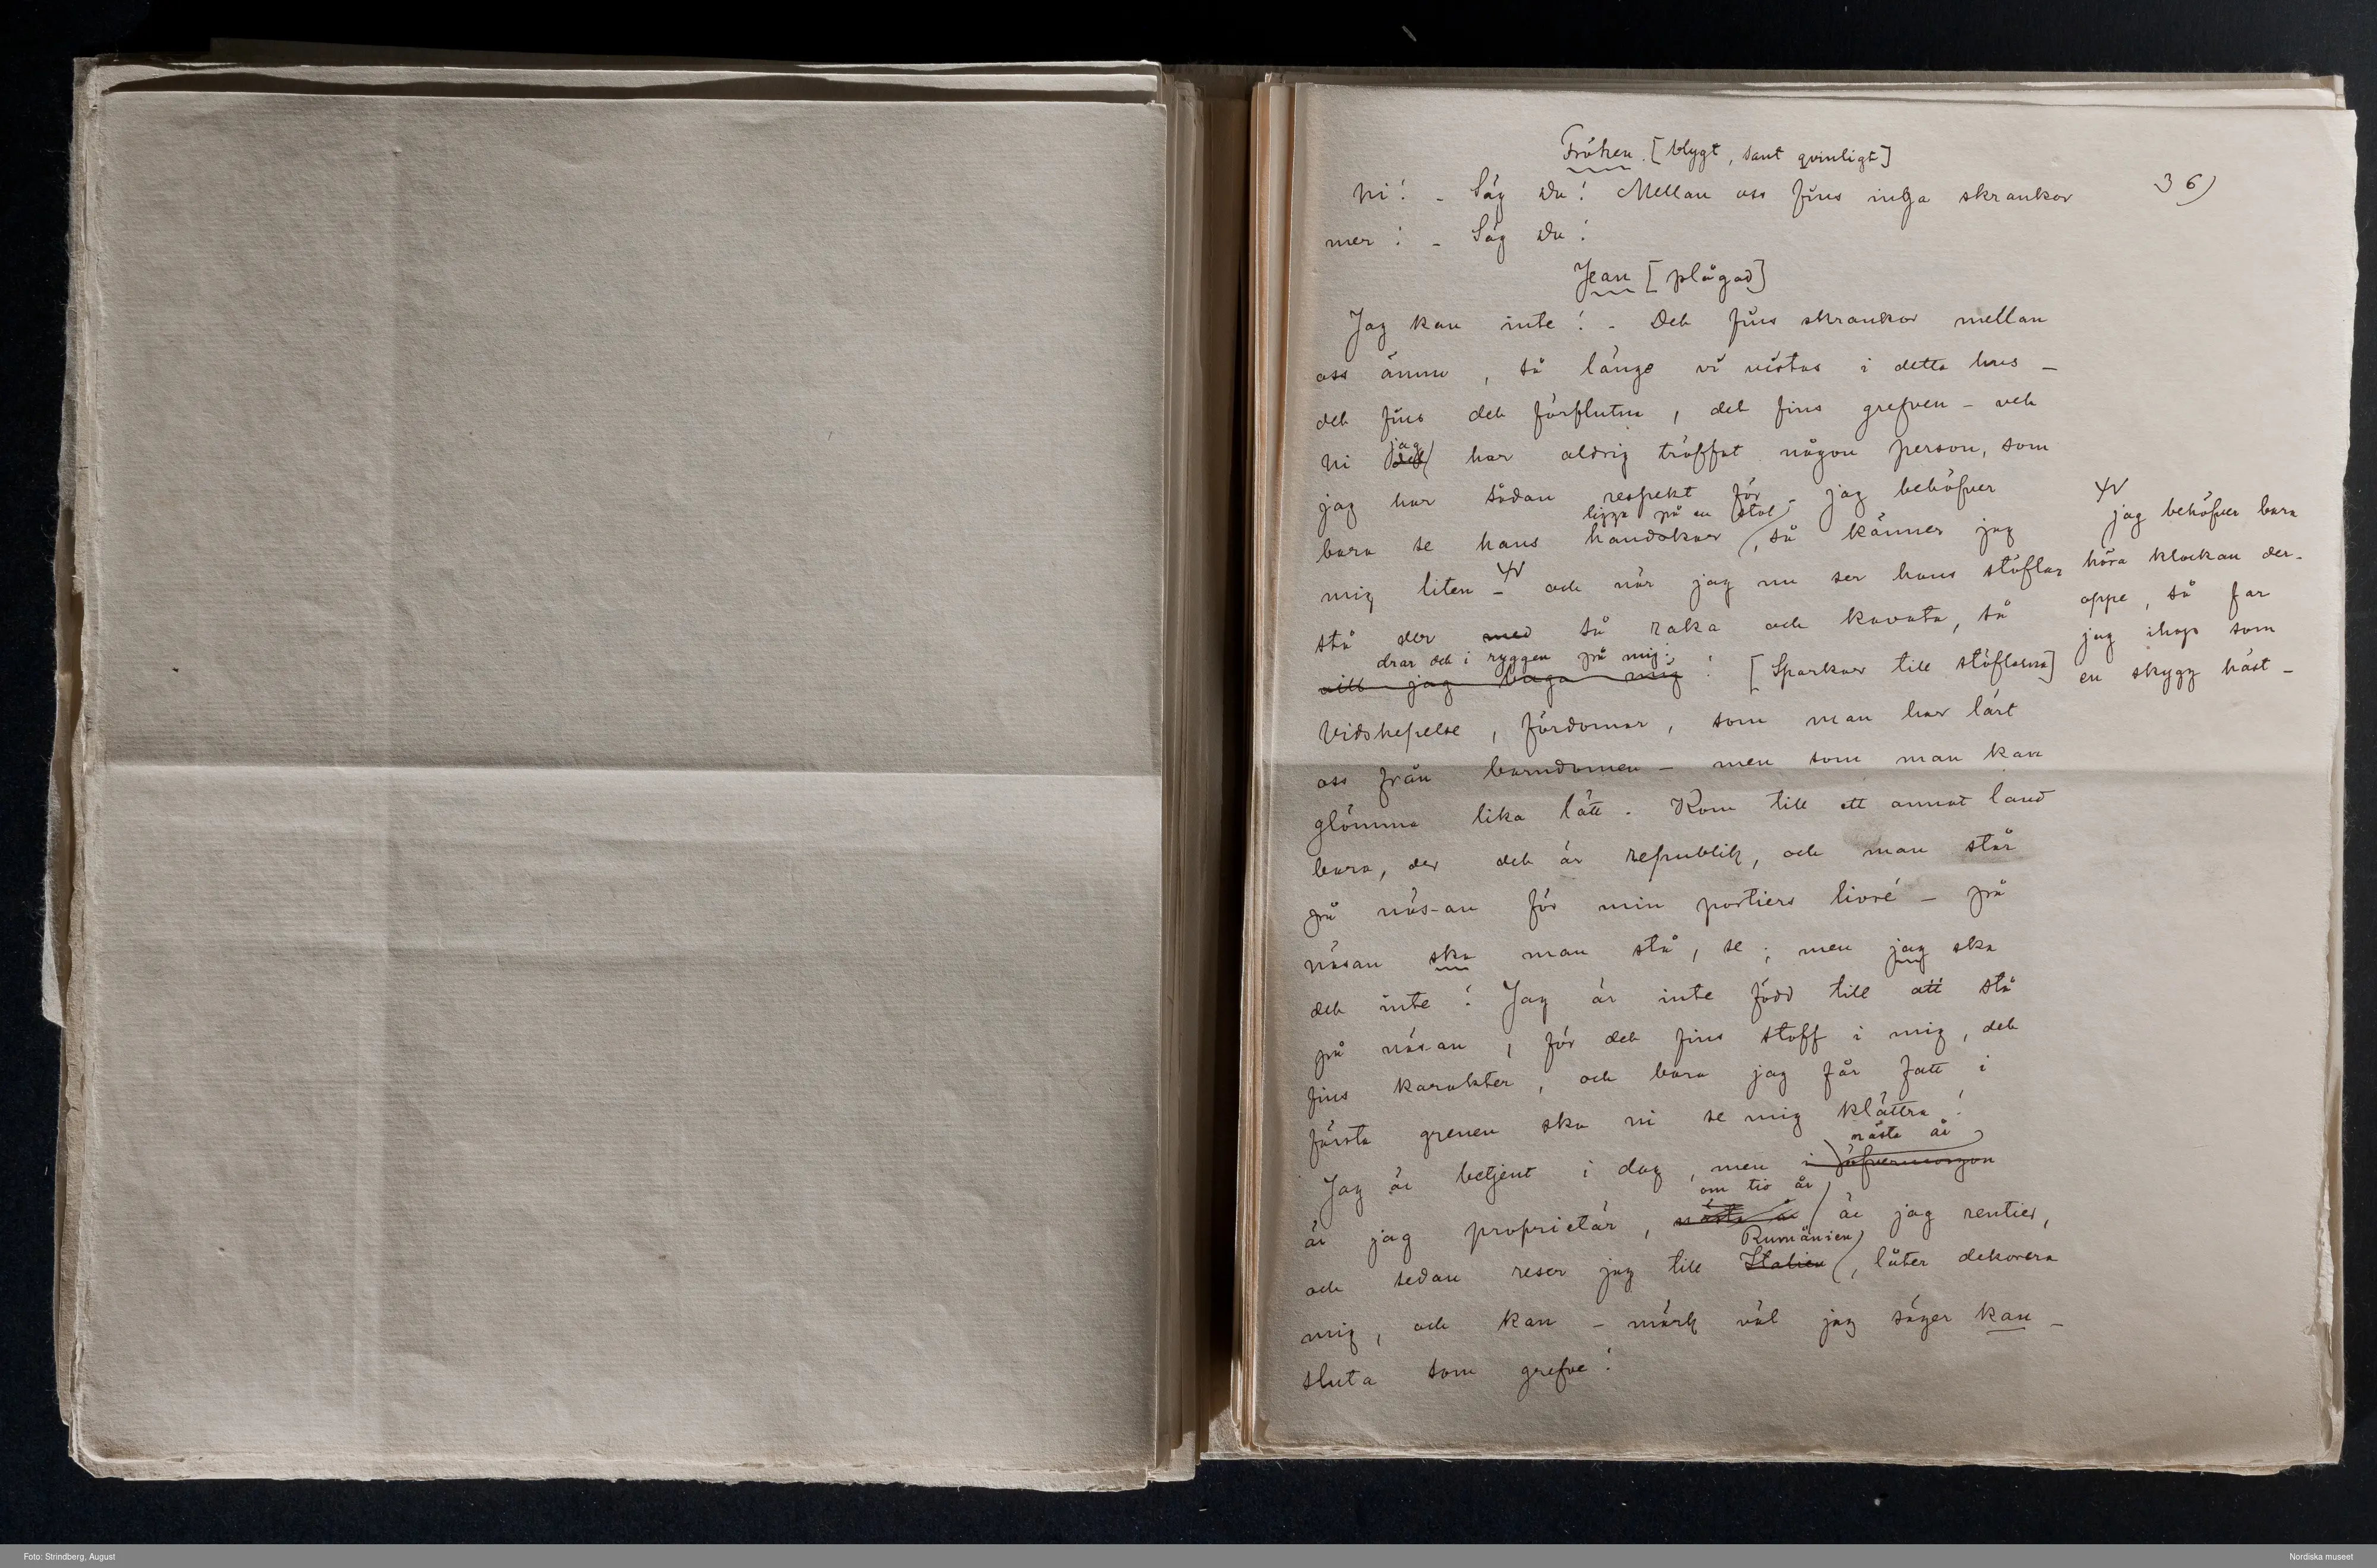 Fröken. [blygt, sant qvinligt]
36)
Ni! – Säg Du! Mellan oss fins inga skrankor
mer! – Säg Du!
Jean [plågad]
Jag kan inte! – Det fins skrankor mellan
oss ännu, så länge vi vistas i detta hus –
det fins det förflutna, det fins grefven – vet
jag
ni det har aldrig träffat någon person, som
jag har sådan respekt för – jag behöfver
ligga på en stol
bara se hans handskar, så känner jag
mig liten – och när jag nu ser hans stöflar
stå der med så raka och kavata, så
drar det i ryggen på mig
vill jag buga mig! [Sparkar till stöflarna]
jag behöfver bara
höra klockan der-
oppe, så far
jag ihop som
en skygg häst –
Vidskepelse, fördomar, som man har lärt
oss från barndomen – men som man kan
glömma lika lätt. Kom till ett annat land
bara, der det är republik, och man står
på näsan för min portiers livré – på
näsan ska man stå, se; men jag ska
det inte! Jag är inte född till att stå
på näsan, för det fins stoff i mig, det
fins karakter, och bara jag får fatt i
första grenen ska ni se mig klättra!
nästa år
Jag är betjent i dag, men i öfvermorgon
om tio år
är jag proprietär, nästa år är jag rentier,
Rumänien
och sedan reser jag till Italien, låter dekorera
mig, och kan – märk väl jag säger kan –
sluta som grefve!
Foto: Strindberg, August
Nordiska museet